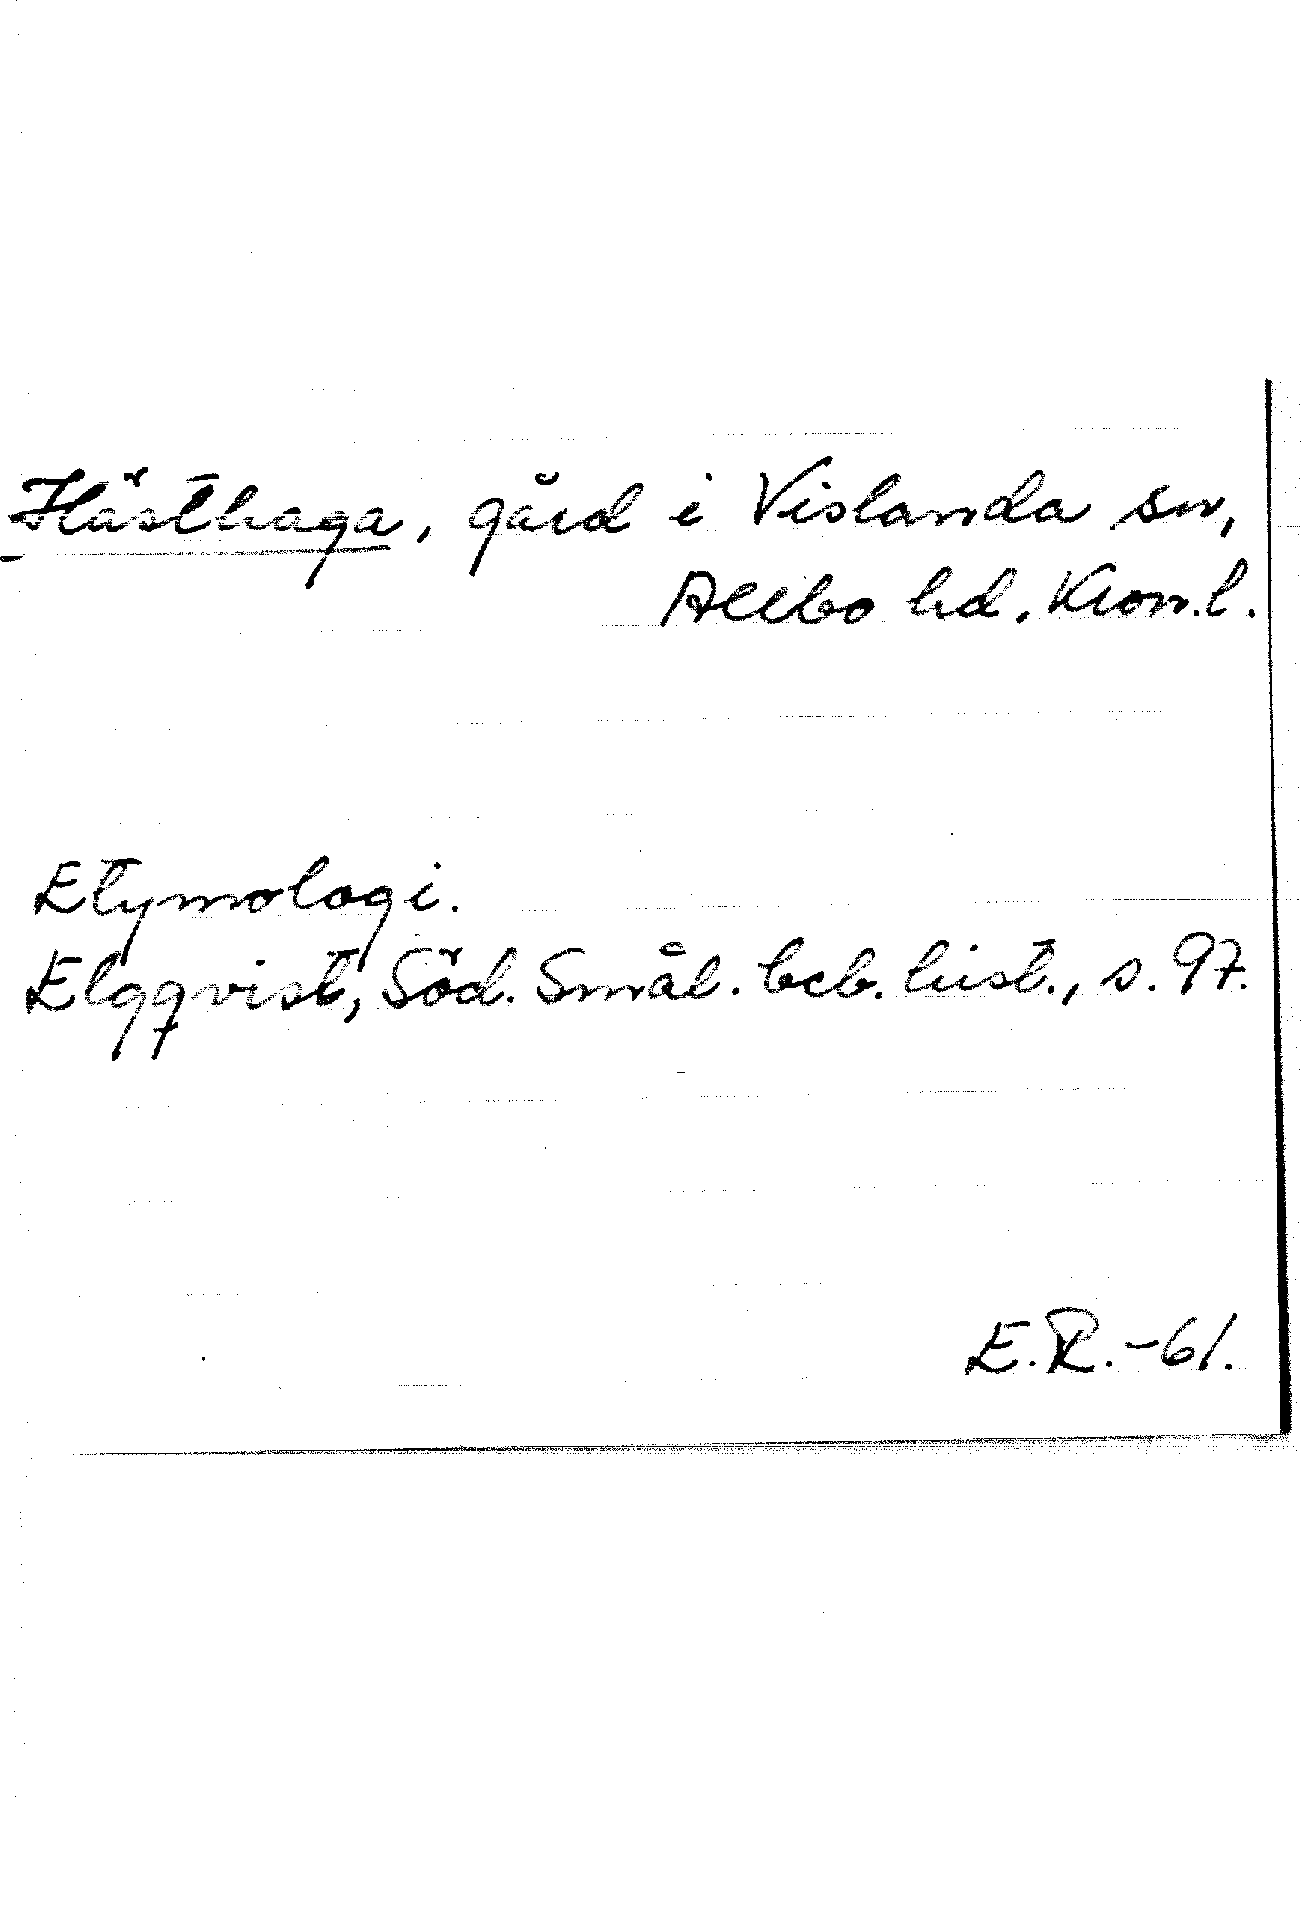 Hästhaga, gård i Vislanda sn,
Allbo hd, Kron.l.
Etymologi.
Elgqvist, Söd. Smål. beb. hist., s. 97.
E.R.-61.